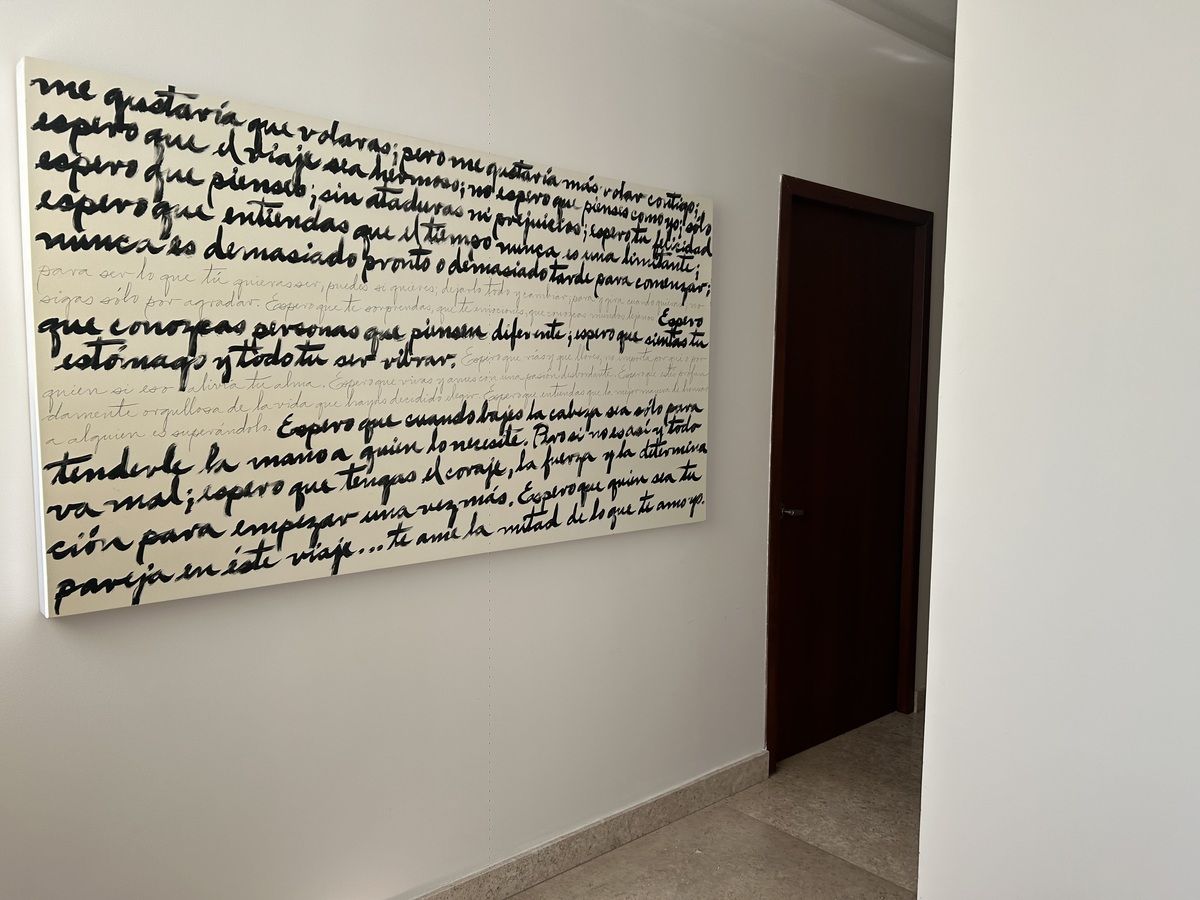 me gustaría que volaras; pero me gustaría más volar contigo;
espero que el viaje sea hermoso; no espero que pienses como yo; sólo
espero que pienses; sin ataduras ni prejuicios; espero tu felicidad
espero que entiendas que el tiempo nunca es una limitante;
nunca es demasiado pronto o demasiado tarde para comenzar;
para ser lo que tú quieras ser, puedes si quieres; dejarlo todo y cambiar, para y gira cuando quieras, no
sigas sólo por agradar. Espero que te sorprendas, que te emociones, que conozcas mundos lejanos. Espero
que conozcas personas que piensen diferente; espero que sientas tu
estómago y todo tu ser vibrar. Espero que rías y que llores, no importa por qué o por
quien si eso alivia tu alma. Espero que vivas y ames con una pasión desbordante. Espero que estés profun
damente orgullosa de la vida que hayas decidido elegir. Espero que entiendas que la mejor manera de
a alguien es superándolo. Espero que cuando bajes la cabeza sea sólo para
tenderle la mano a quien lo necesite. Pero si no es así y todo
va mal; espero que tengas el coraje, la fuerza y la determina
ción para empezar una vez más. Espero que quien sea tu
pareja en éste viaje... te ame la mitad de lo que te amo yo.